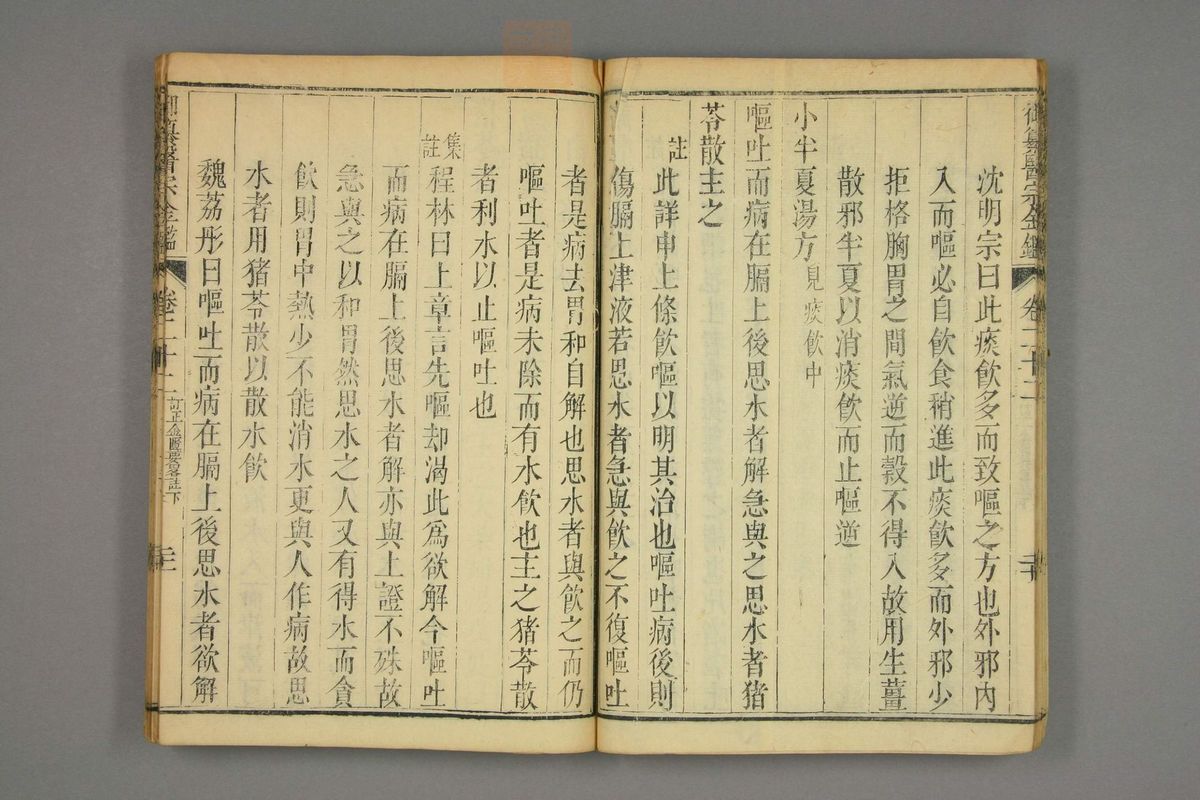 御纂醫宗金鑑 卷二十二 二十
沈明宗曰此痰飲多而致嘔之方也外邪內
入而嘔必自飲食稍進此痰飲多而外邪少
拒格胸胃之間氣逆而穀不得入故用生薑
散邪半夏以消痰飲而止嘔逆
小半夏湯方見痰飲中
嘔吐而病在膈上後思水者解急與之思水者猪
苓散主之
註此詳申上條飲嘔以明其治也嘔吐病後則
傷膈上津液若思水者急與飲之不復嘔吐
者是病去胃和自解也思水者與飲之而仍
嘔吐者是病未除而有水飲也主之猪苓散
者利水以止嘔吐也
集註程林曰上章言先嘔却渴此爲欲解今嘔吐
而病在膈上後思水者解亦與上證不殊故
急與之以和胃然思水之人又有得水而貪
飲則胃中熱少不能消水更與人作病故思
水者用猪苓散以散水飲
魏荔彤曰嘔吐而病在膈上後思水者欲解
御纂醫宗金鑑 卷二十二 訂正金匱要畧註下